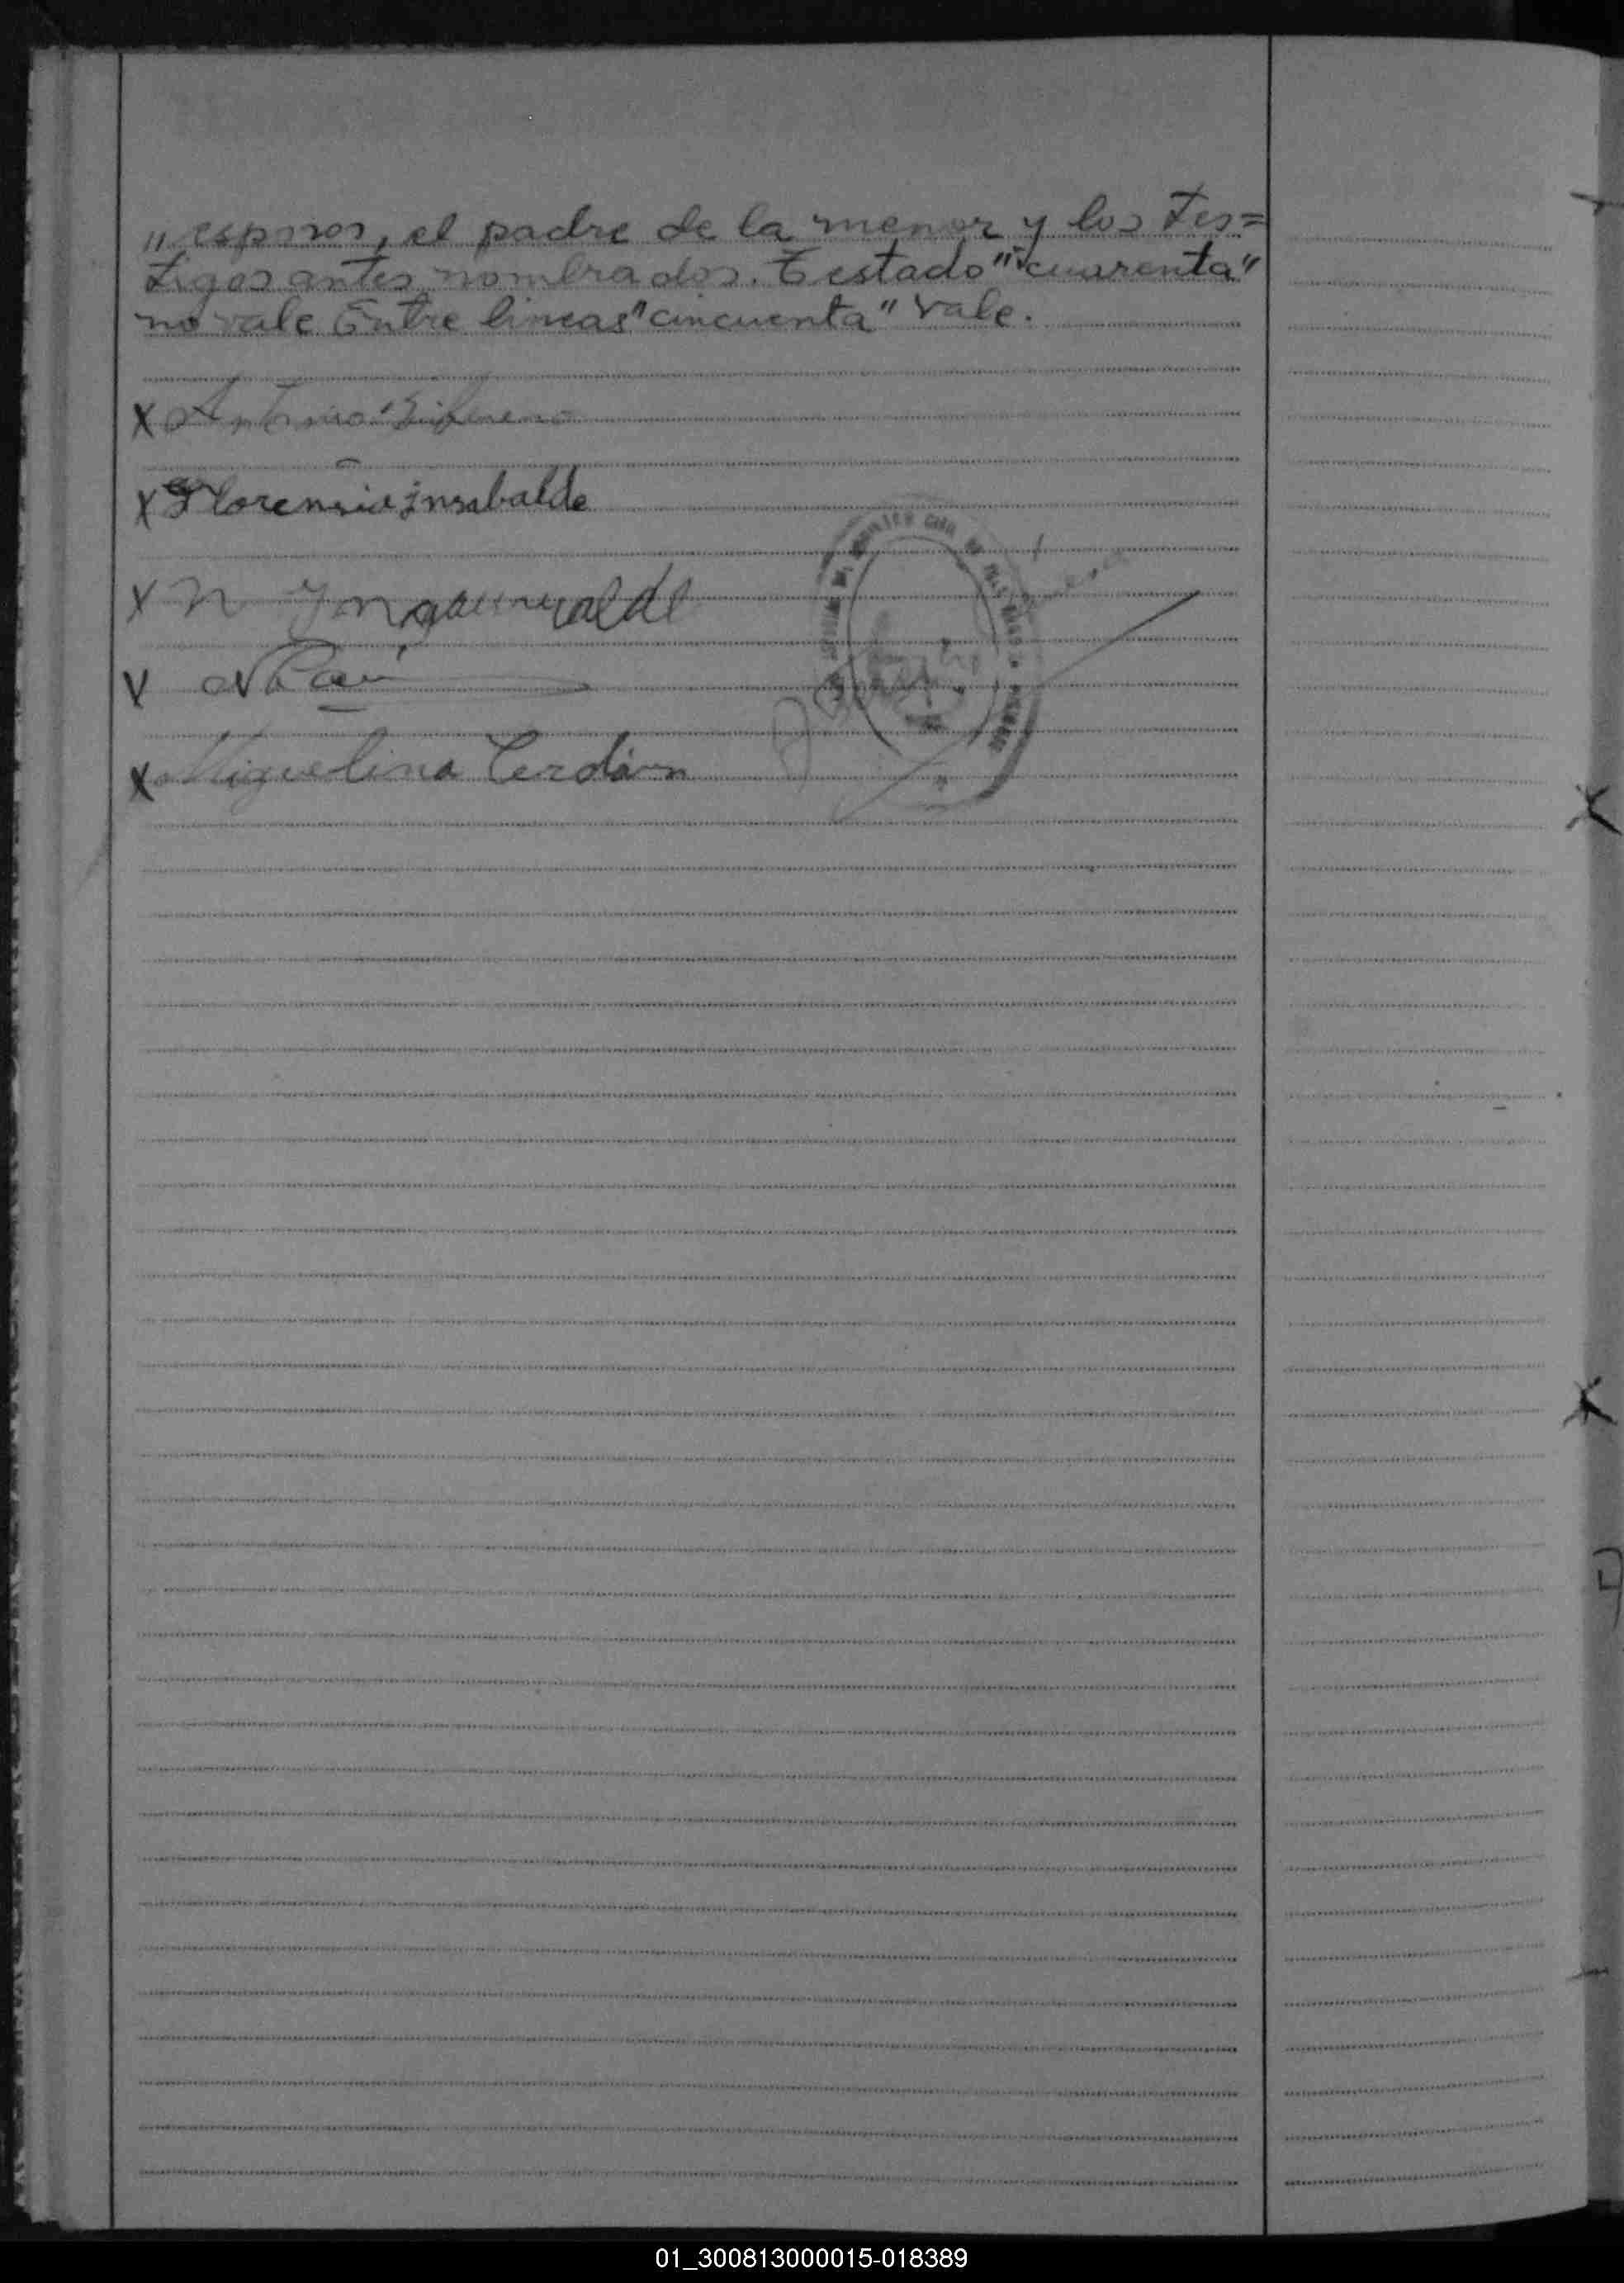 " esposos, el padre de la menor y los tes=
tigos antes nombrados. Testado "cuarenta"
no vale Entre lineas "cincuenta" vale.
X Antonio
X Florensio insabalde
X N
V
X Miguelina Cerdán
X
X
01_300813000015-018389